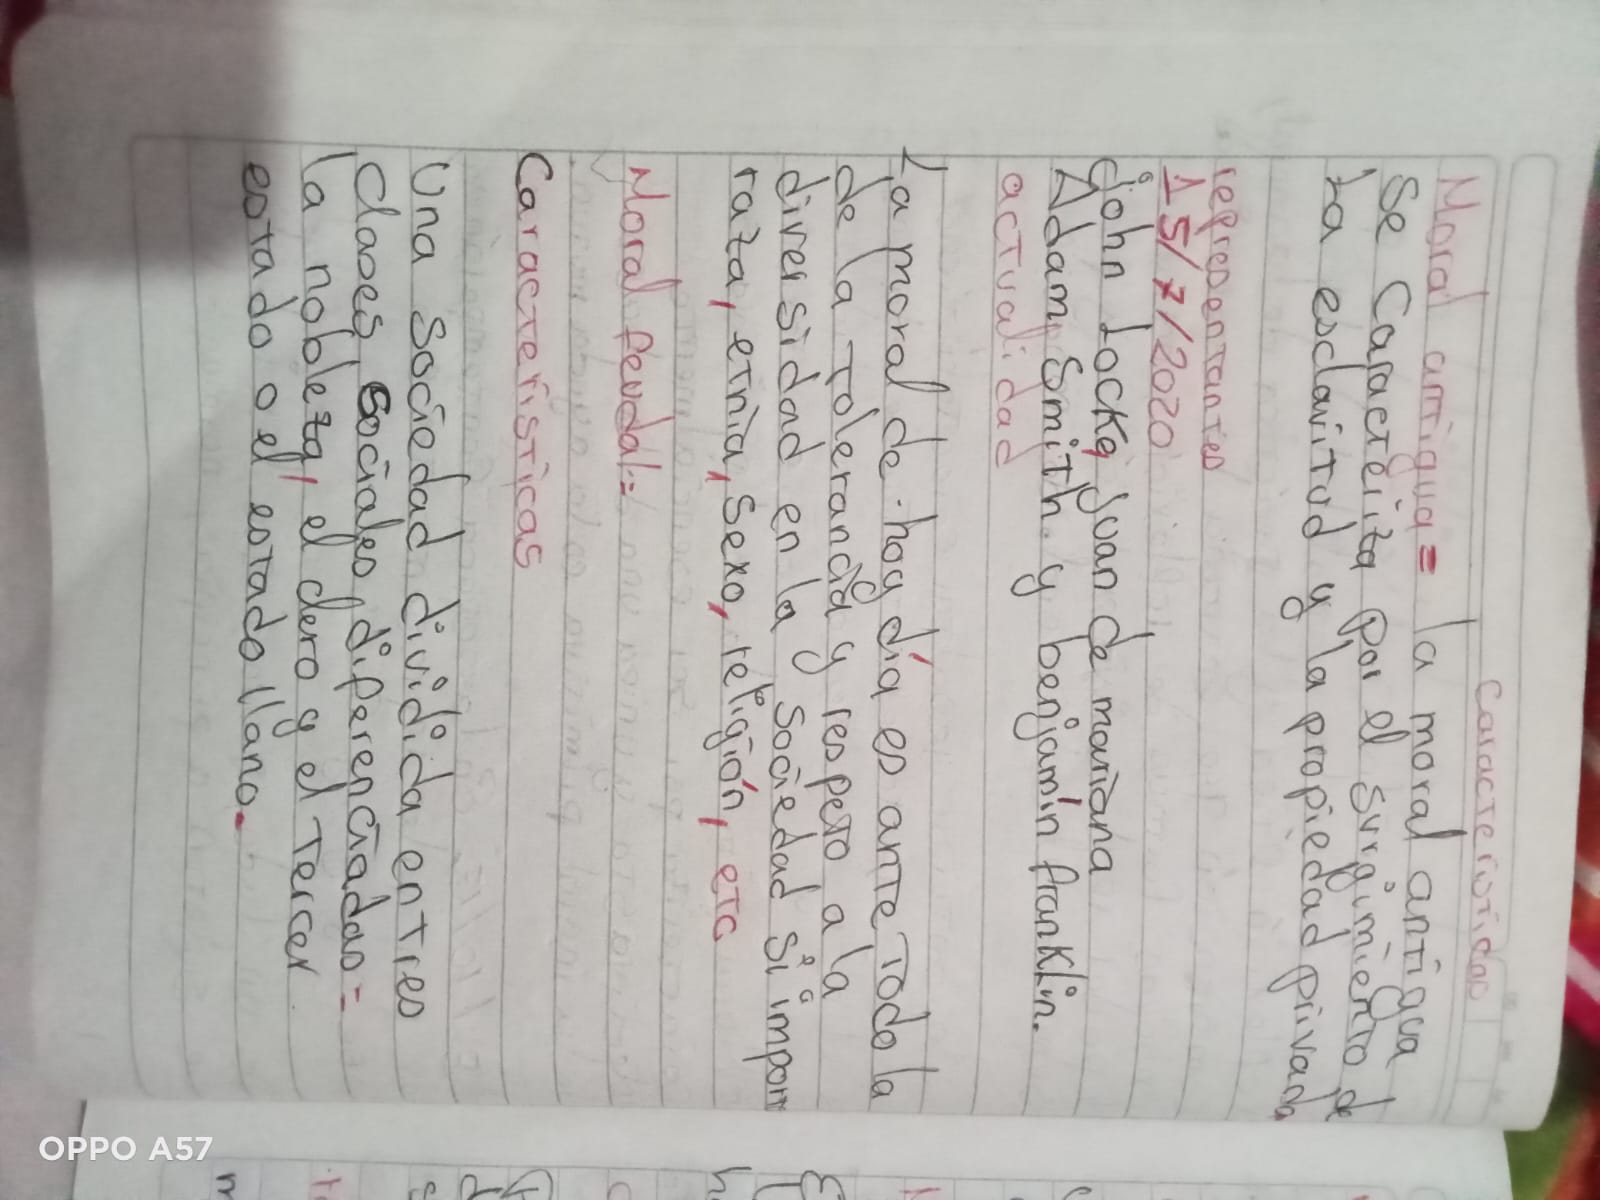 Características
Moral antigua = la moral antigua
Se Caracteriza por el surgimiento de
La esclavitud y la propiedad privada
representantes
15/7/2020
john Locke, juan de mariana
Adam Smith y benjamín franklin.
actualidad
La moral de hoy día es ante todo la
de la tolerancia y respeto a la
diversidad en la sociedad si import
raza, etnia, sexo, religión, etc
Moral feudal:=
Características
Una sociedad dividida entres
Clases, sociales, diferenciadas:=
la nobleza, el clero y el Tercer
estado o el estado llano.
OPPO A57